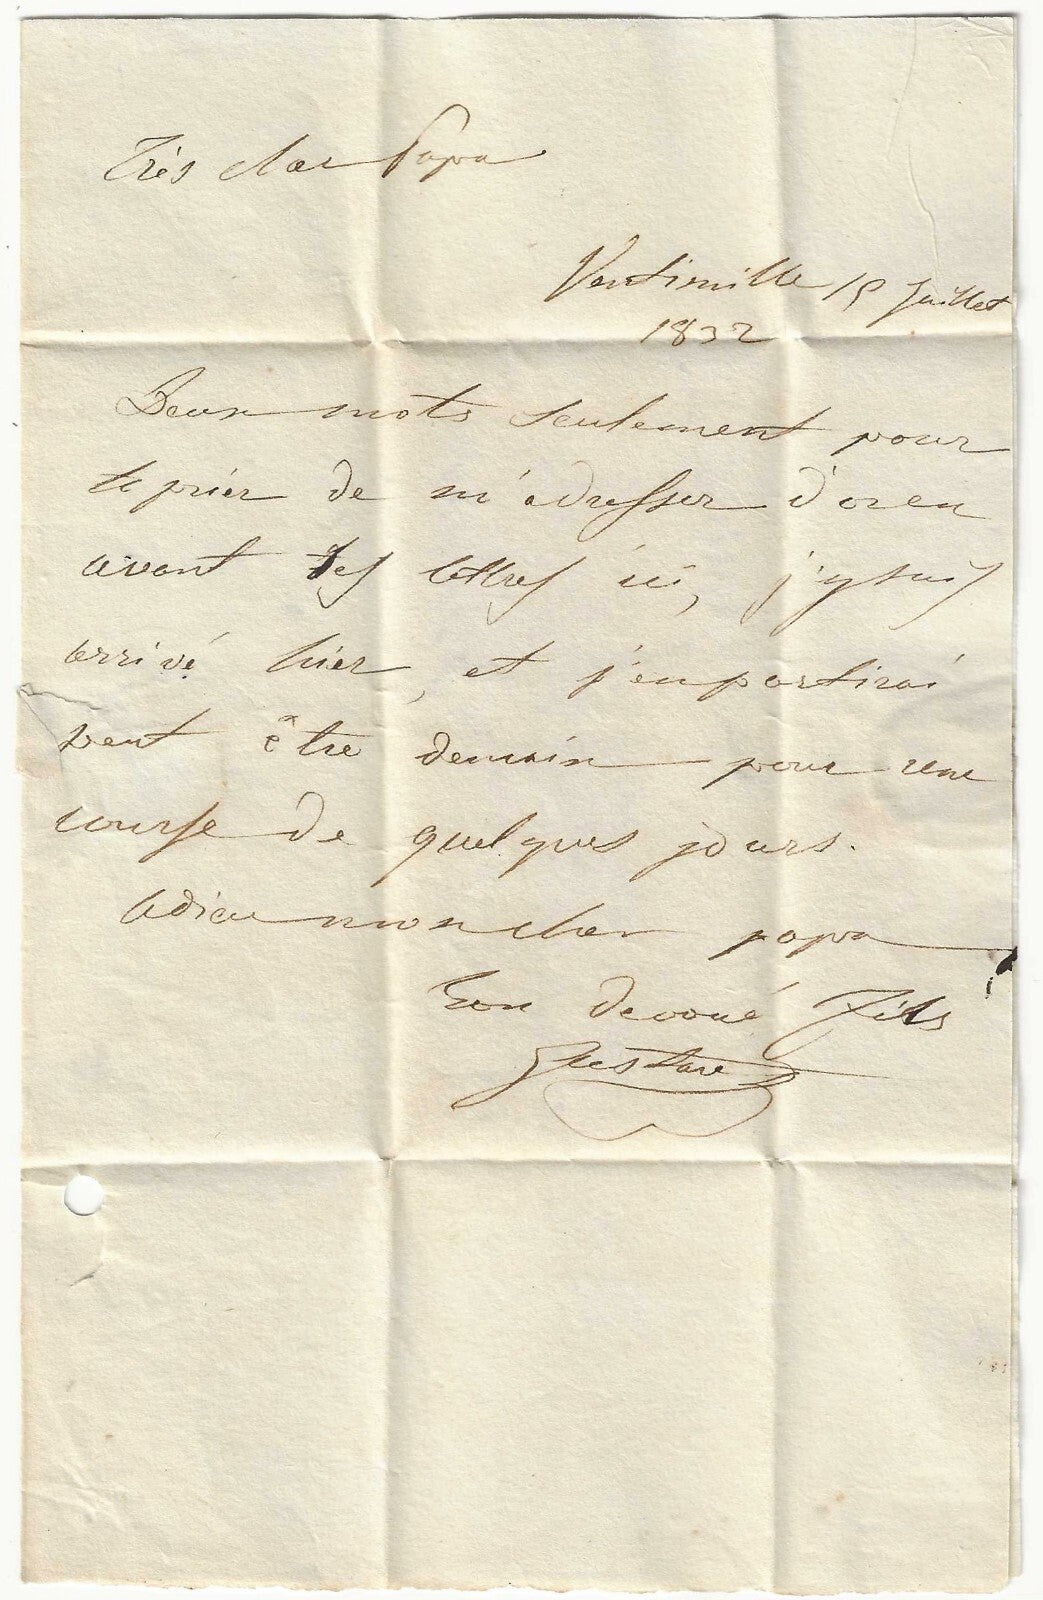 Très cher Papa
Vantimille 15 Juillet
1832
Deux mots seulement pour
te prier de m'adresser d'oren
avant tes lettres ici, j'y suis
arrivé hier, et j'en partirai
peut être demain pour une
course de quelques jours.
adieu mon cher papa
Ton devoué Fils
Gustave